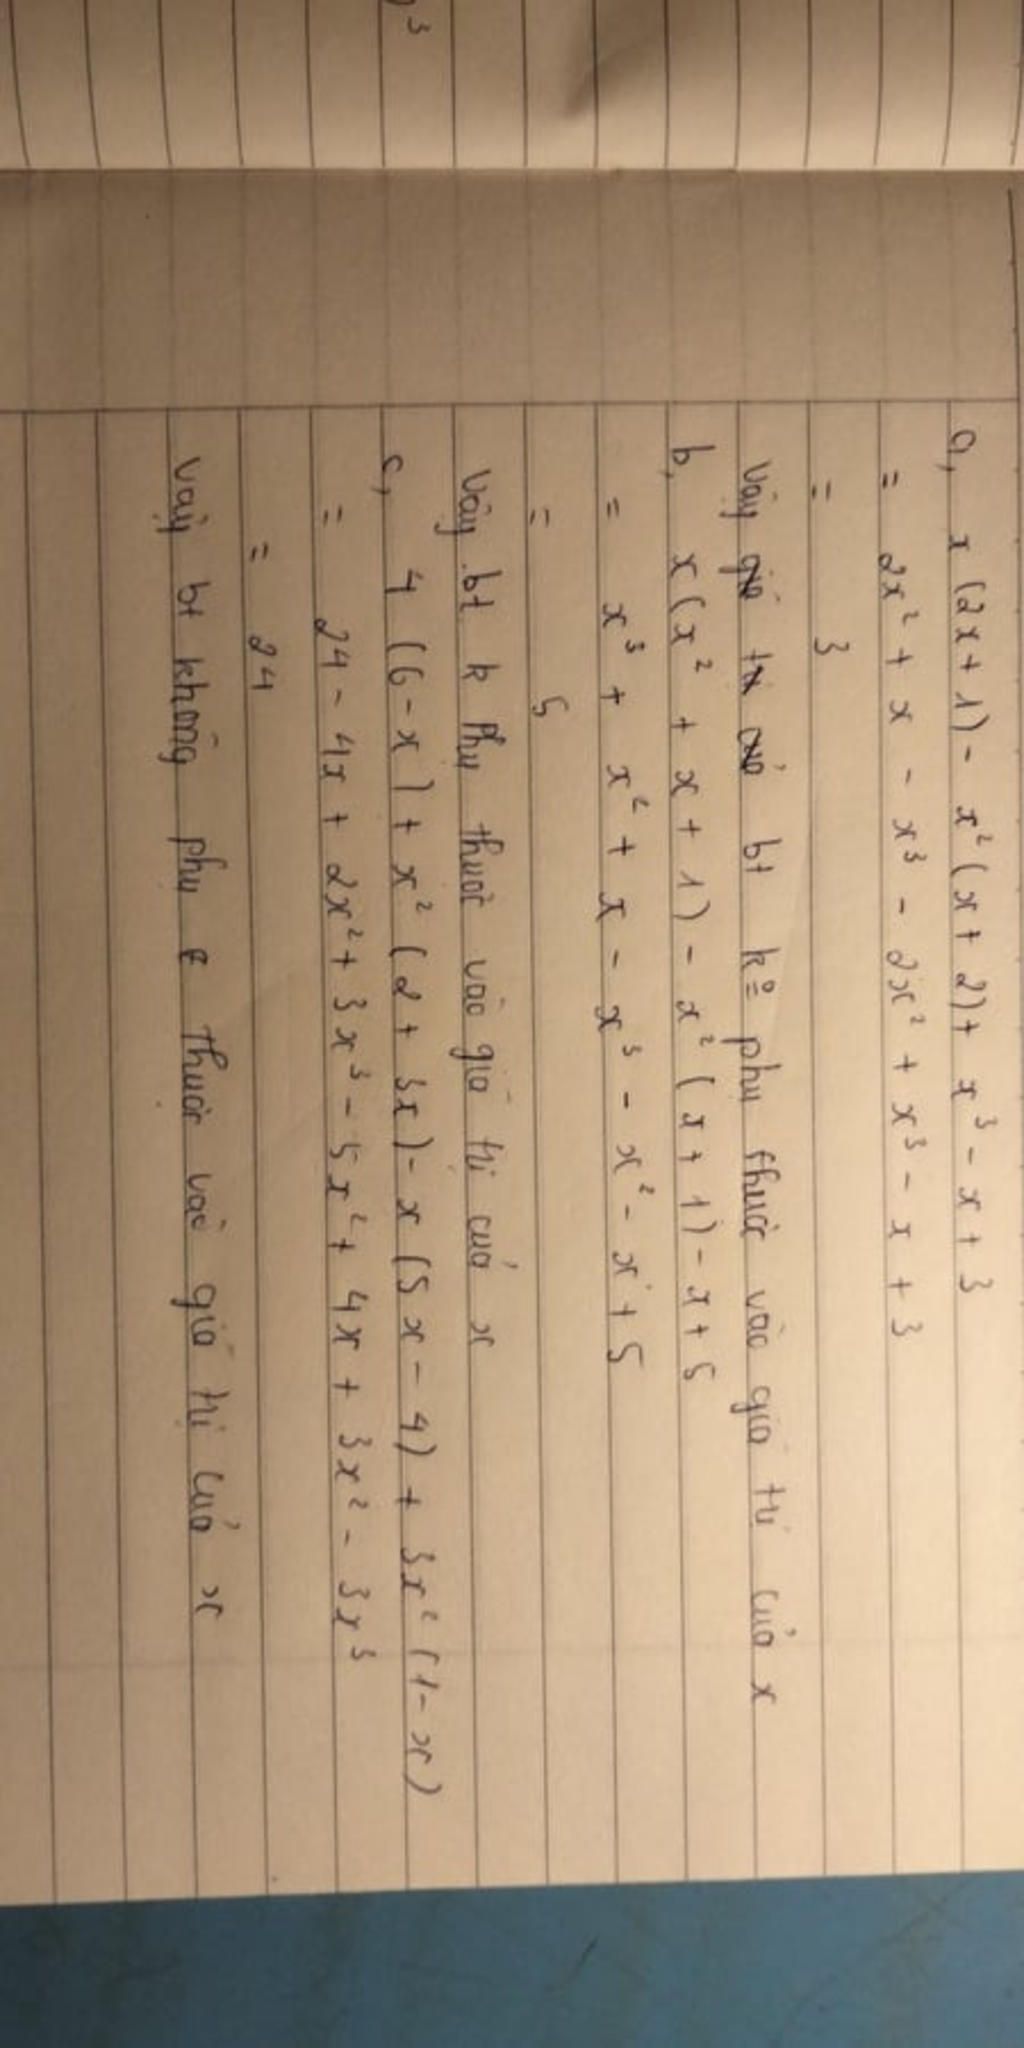 3
a, x(2x+1) - x²(x+2) + x³ - x + 3
= 2x² + x - x³ - 2x² + x³ - x + 3
= 3
Vậy giá trị của bt kº phụ thuộc vào giá trị của x
b, x(x² + x + 1) - x²(x+1) - x + 5
= x³ + x² + x - x³ - x² - x + 5
= 5
Vậy bt k phụ thuộc vào giá trị của x
c, 4(6-x) + x²(2+3x) - x(5x-4) + 3x²(1-x)
= 24 - 4x + 2x² + 3x³ - 5x² + 4x + 3x² - 3x³
= 24
Vậy bt không phụ thuộc vào giá trị của x